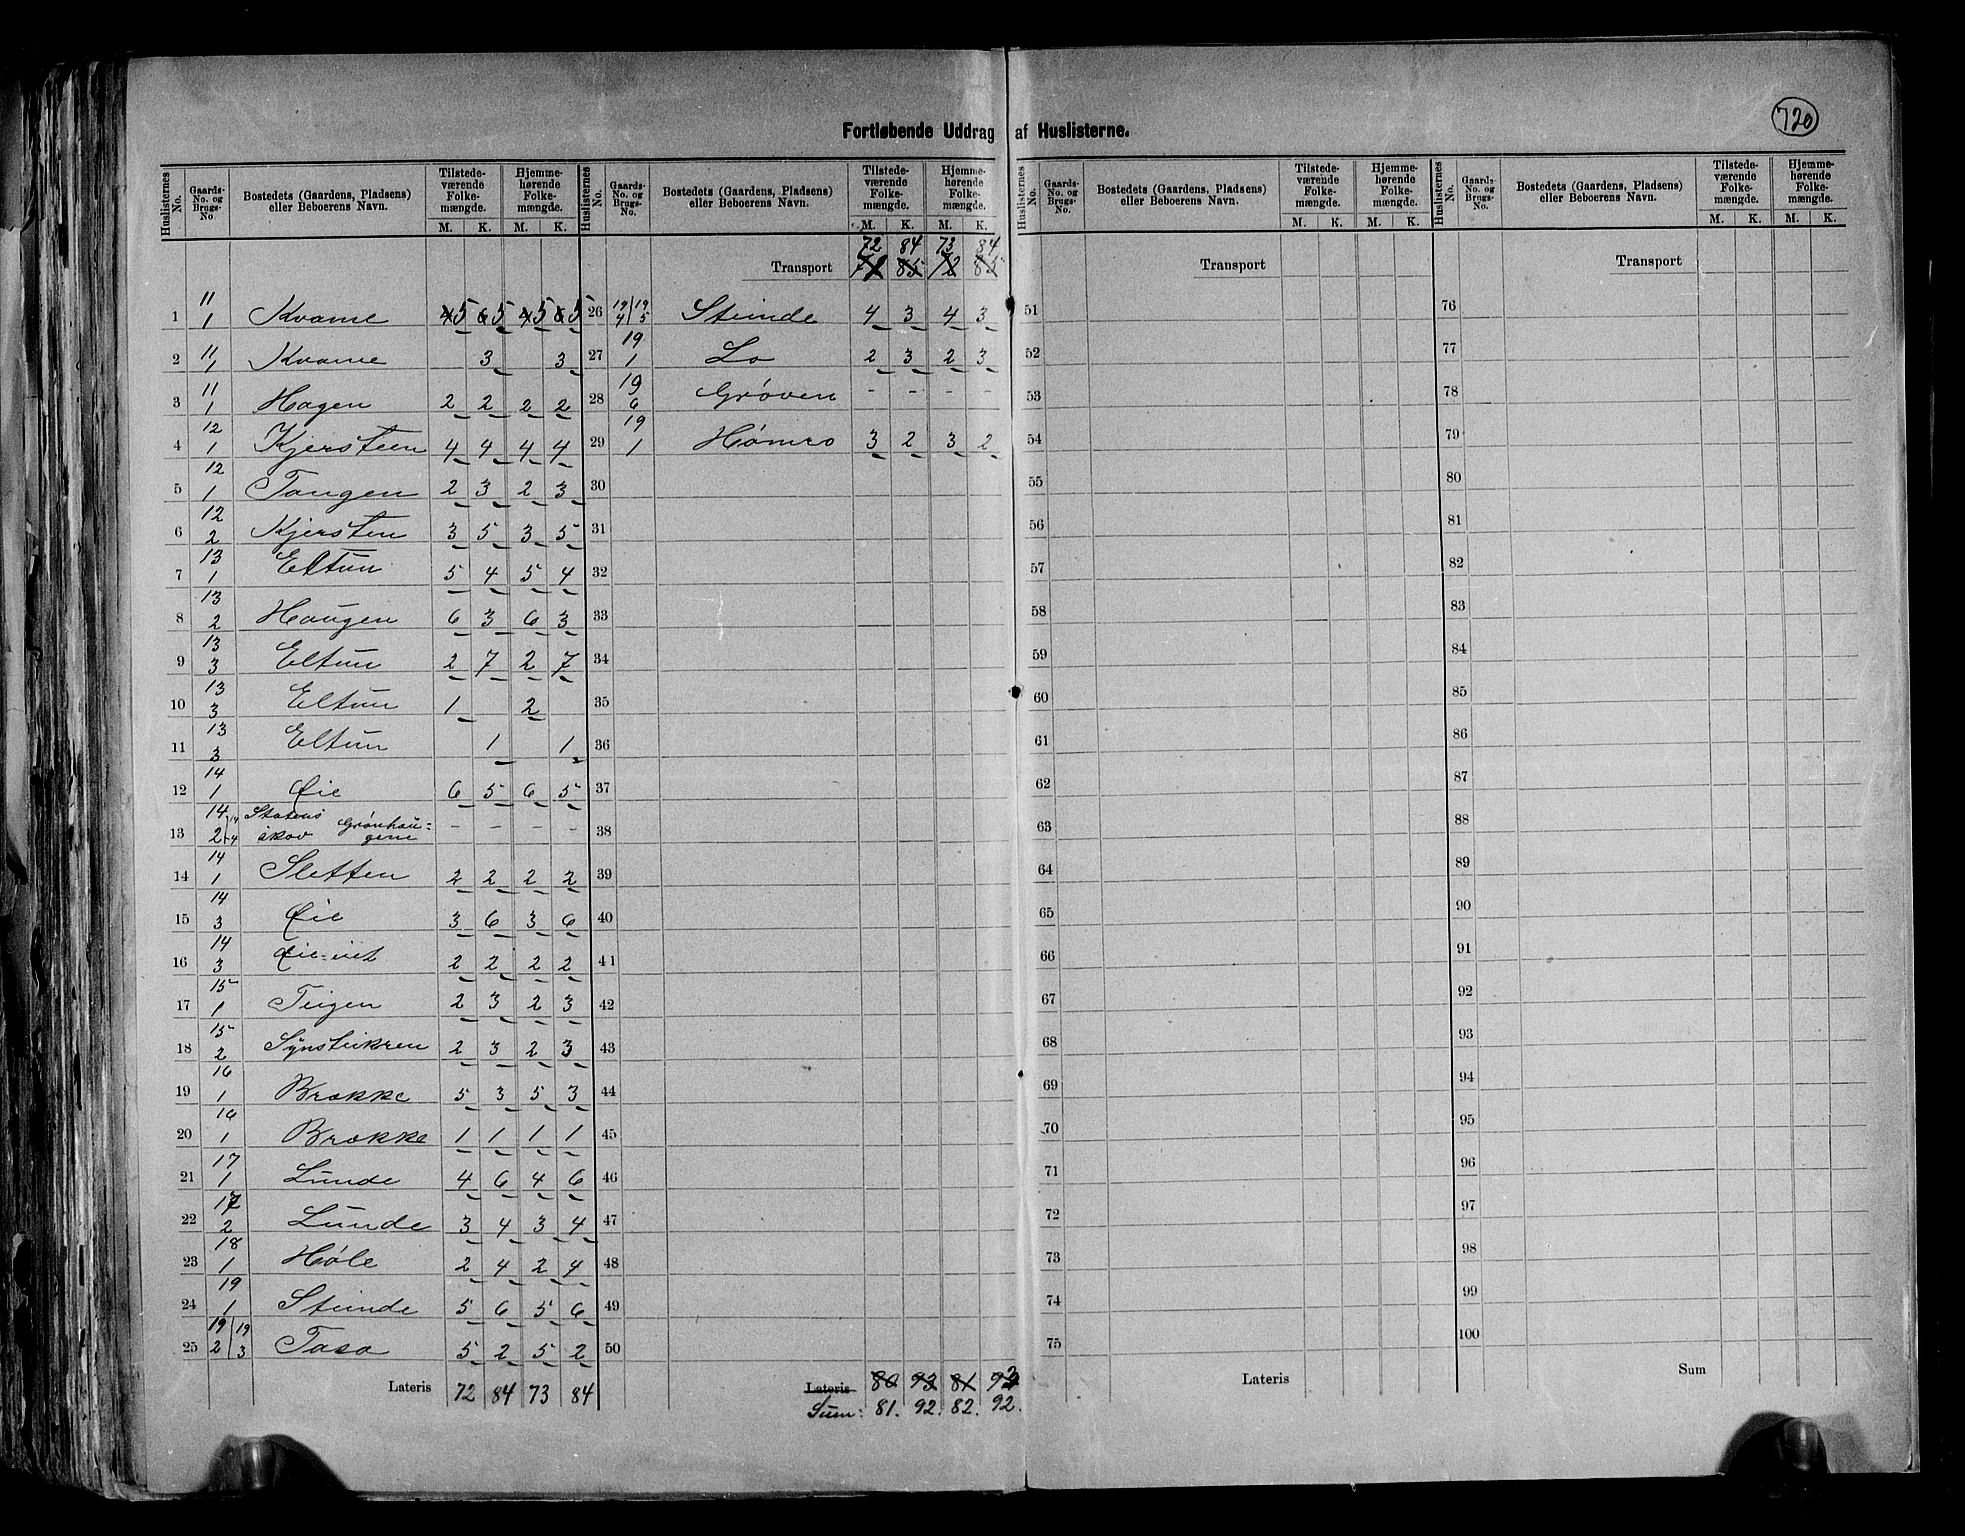 720
Fortløbende Uddrag af Huslisterne.
Huslisternes No. | Gaards-No. og Brugs-No | Bostedets (Gaardens, Pladsens) eller Beboerens Navn. | Tilstedeværende Folkemængde. M. K. | Hjemmehørende Folkemængde. M. K.
1 | 11 1 | Kvame | 5 | 5 | 5 | 5
2 | 11 1 | Kvame | | 3 | | 3
3 | 11 1 | Hagen | 2 | 2 | 2 | 2
4 | 12 1 | Kjersteen | 4 | 4 | 4 | 4
5 | 12 1 | Tangen | 2 | 3 | 2 | 3
6 | 12 2 | Kjersten | 3 | 5 | 3 | 5
7 | 13 1 | Eltun | 5 | 4 | 5 | 4
8 | 13 2 | Haugen | 6 | 3 | 6 | 3
9 | 13 3 | Eltun | 2 | 7 | 2 | 7
10 | 13 3 | Eltun | 1 | | 2 |
11 | 13 3 | Eltun | | 1 | | 1
12 | 14 1 | Øie | 6 | 5 | 6 | 5
13 | 14 2 14 4 | Statens skov Grønhaugene | - | - | - | -
14 | 14 1 | Sletten | 2 | 2 | 2 | 2
15 | 14 3 | Øie | 3 | 6 | 3 | 6
16 | 14 3 | Øie=iet | 2 | 2 | 2 | 2
17 | 15 1 | Teigen | 2 | 3 | 2 | 3
18 | 15 2 | | 2 | 3 | 2 | 3
19 | 16 1 | Brække | 5 | 3 | 5 | 3
20 | 16 1 | Brække | 1 | 1 | 1 | 1
21 | 17 1 | Lunde | 4 | 6 | 4 | 6
22 | 17 2 | Lunde | 3 | 4 | 3 | 4
23 | 18 1 | Høle | 2 | 4 | 2 | 4
24 | 19 1 | Steinde | 5 | 6 | 5 | 6
25 | 19 2 / 19 3 | Taso | 5 | 2 | 5 | 2
Lateris 72 84 73 84
Huslisternes No. | Gaards-No. og Brugs-No. | Bostedets (Gaardens, Pladsens) eller Beboerens Navn. | Tilstedeværende Folkemængde. M. K. | Hjemmehørende Folkemængde. M. K.
72 84 73 84
Transport 85 85
26 | 19 4 / 19 5 | Steinde | 4 | 3 | 4 | 3
27 | 19 1 | Lo | 2 | 3 | 2 | 3
28 | 19 6 | Grøven | - | - | - | -
29 | 19 1 | | 3 | 2 | 3 | 2
30
31
32
33
34
35
36
37
38
39
40
41
42
43
44
45
46
47
48
49
50
Lateris 80 93 81 93
Sum: 81. 92. 82. 92.
Huslisternes No. | Gaards-No. og Brugs-No. | Bostedets (Gaardens, Pladsens) eller Beboerens Navn. | Tilstedeværende Folkemængde. M. K. | Hjemmehørende Folkemængde. M. K.
Transport
51
52
53
54
55
56
57
58
59
60
61
62
63
64
65
66
67
68
69
70
71
72
73
74
75
Lateris
Huslisternes No. | Gaards-No. og Brugs-No. | Bostedets (Gaardens, Pladsens) eller Beboerens Navn. | Tilstedeværende Folkemængde. M. K. | Hjemmehørende Folkemængde. M. K.
Transport
76
77
78
79
80
81
82
83
84
85
86
87
88
89
90
91
92
93
94
95
96
97
98
99
100
Sum